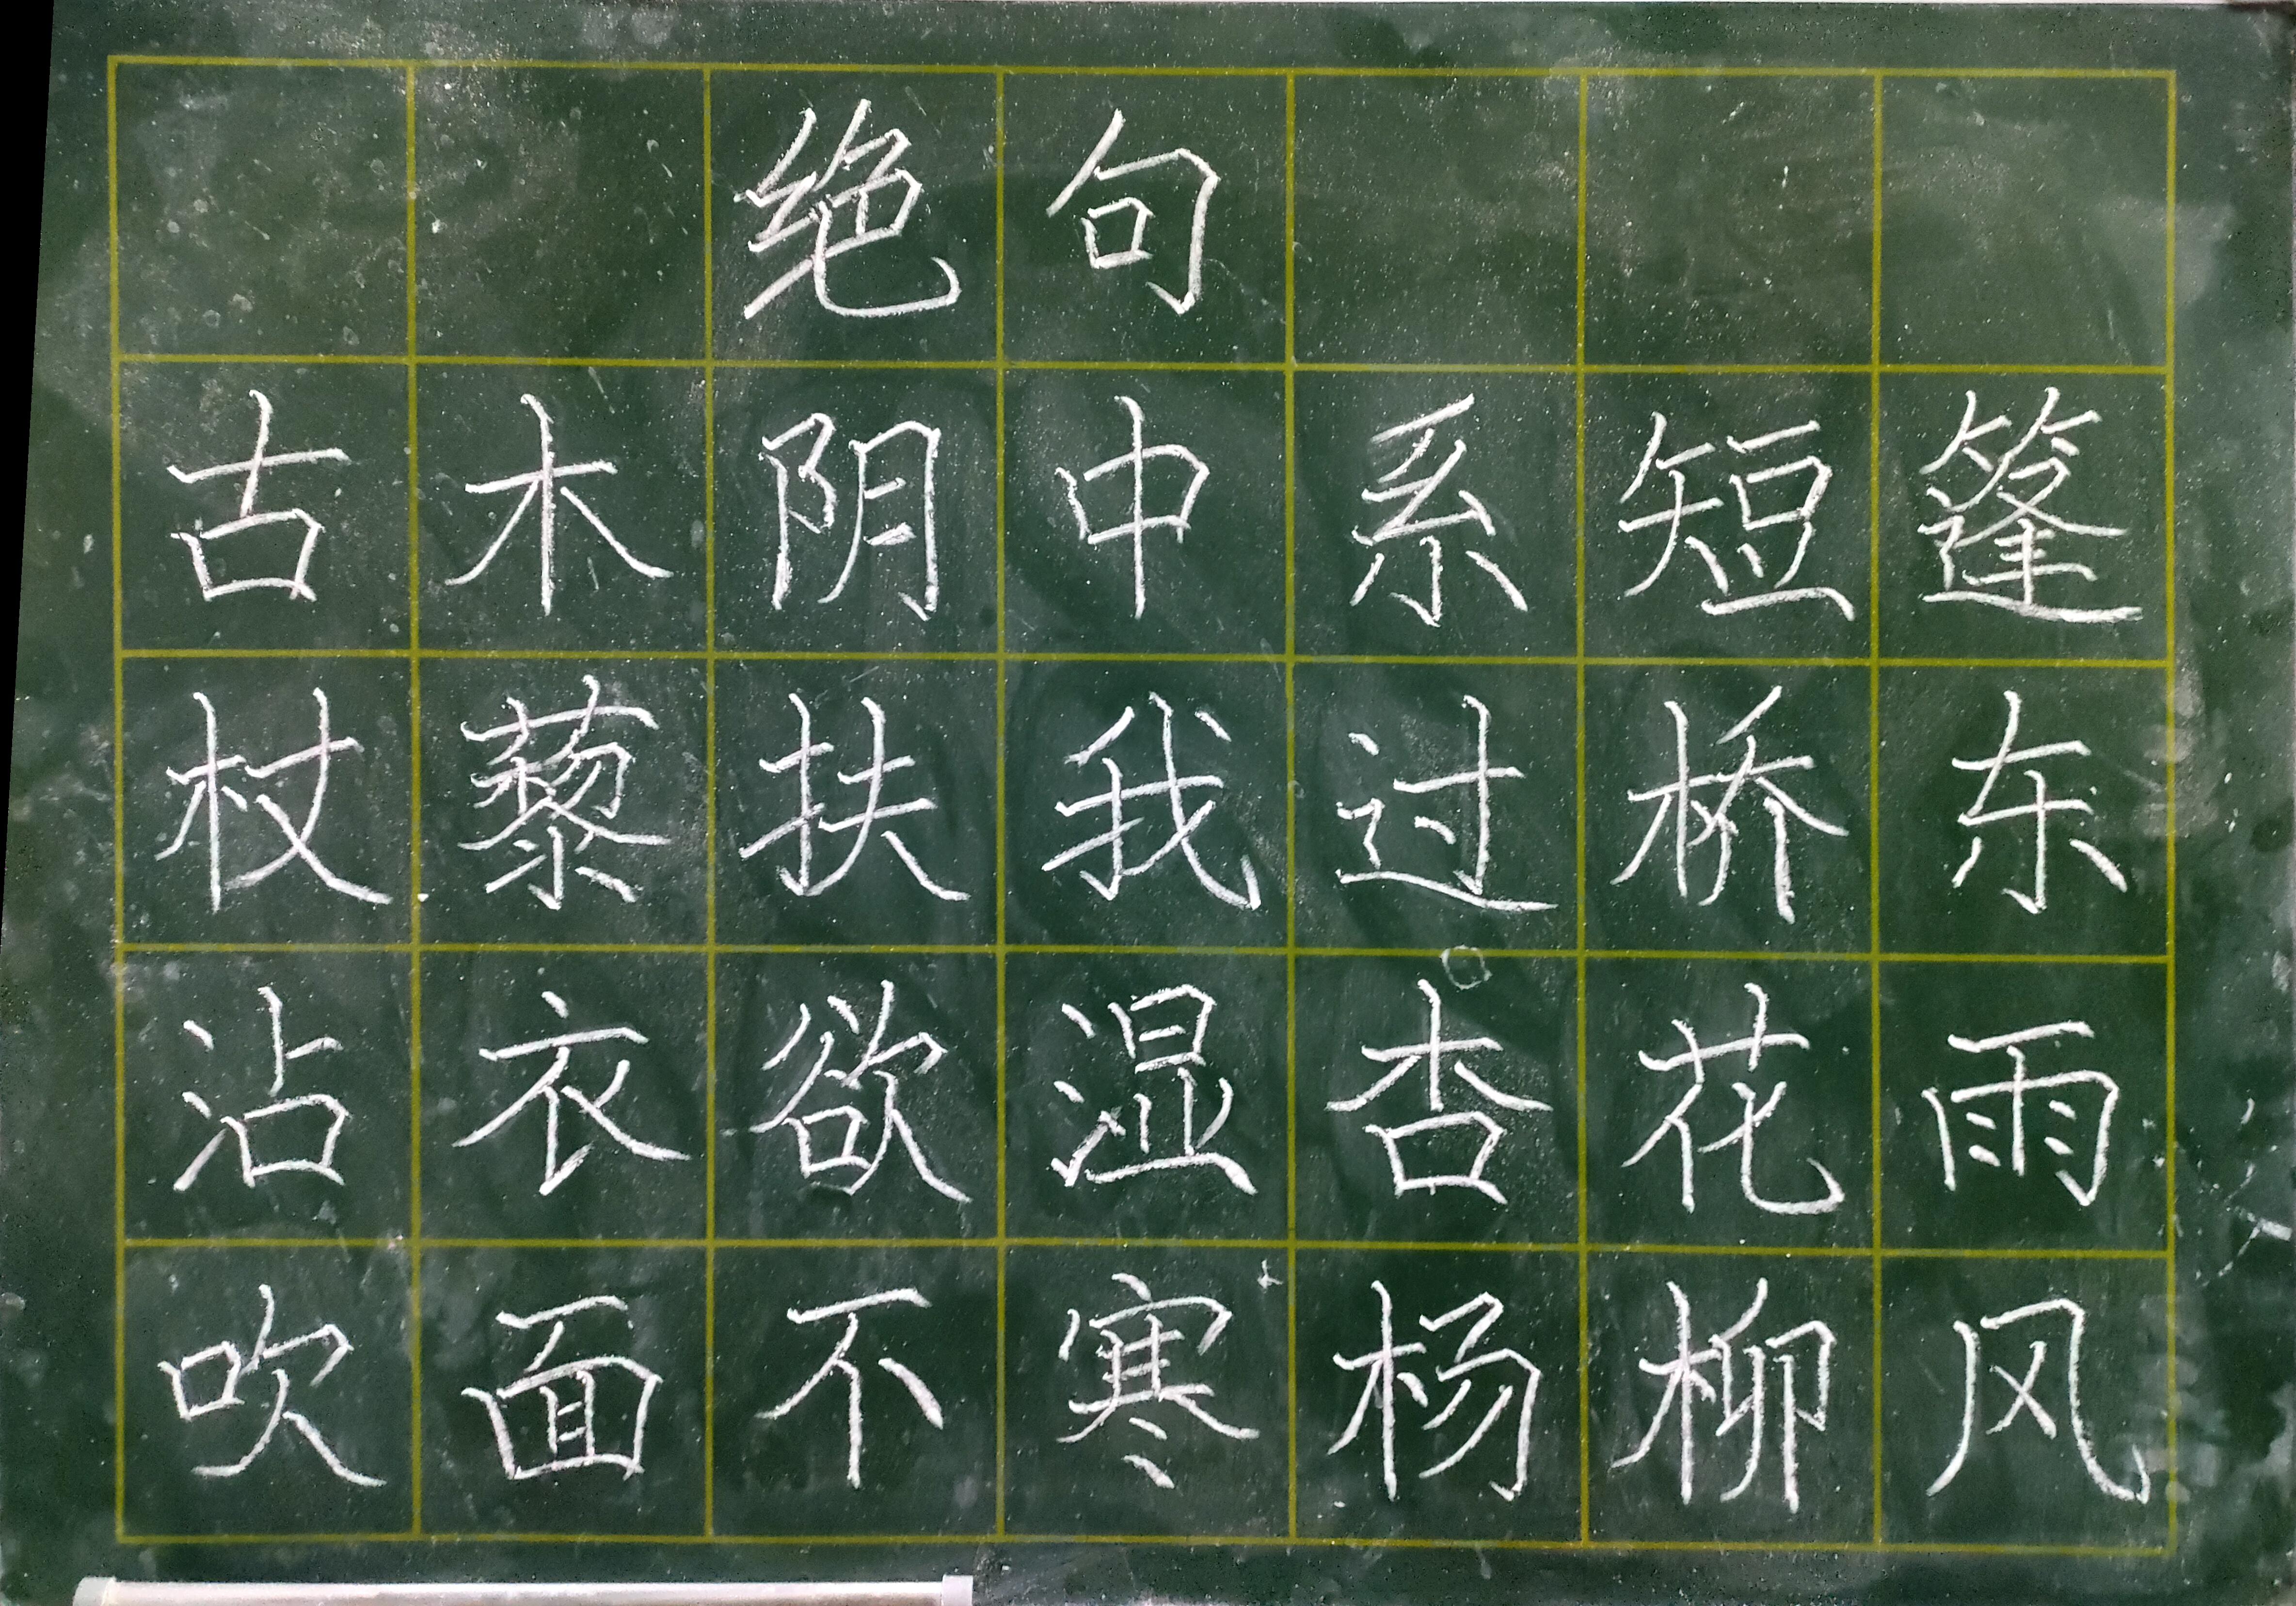 绝句
古木阴中系短篷
杖藜扶我过桥东
沾衣欲湿杏花雨
吹面不寒杨柳风